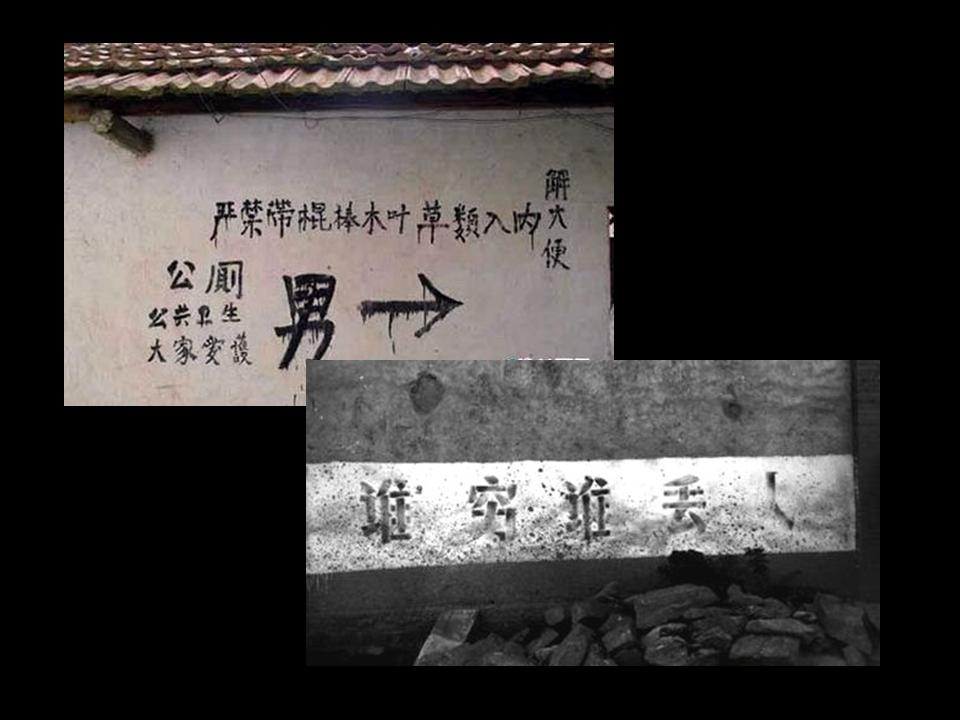 严禁带棍棒木叶草類入内
解大便
公厠
公共卫生
大家愛護
男→
谁穷谁丢